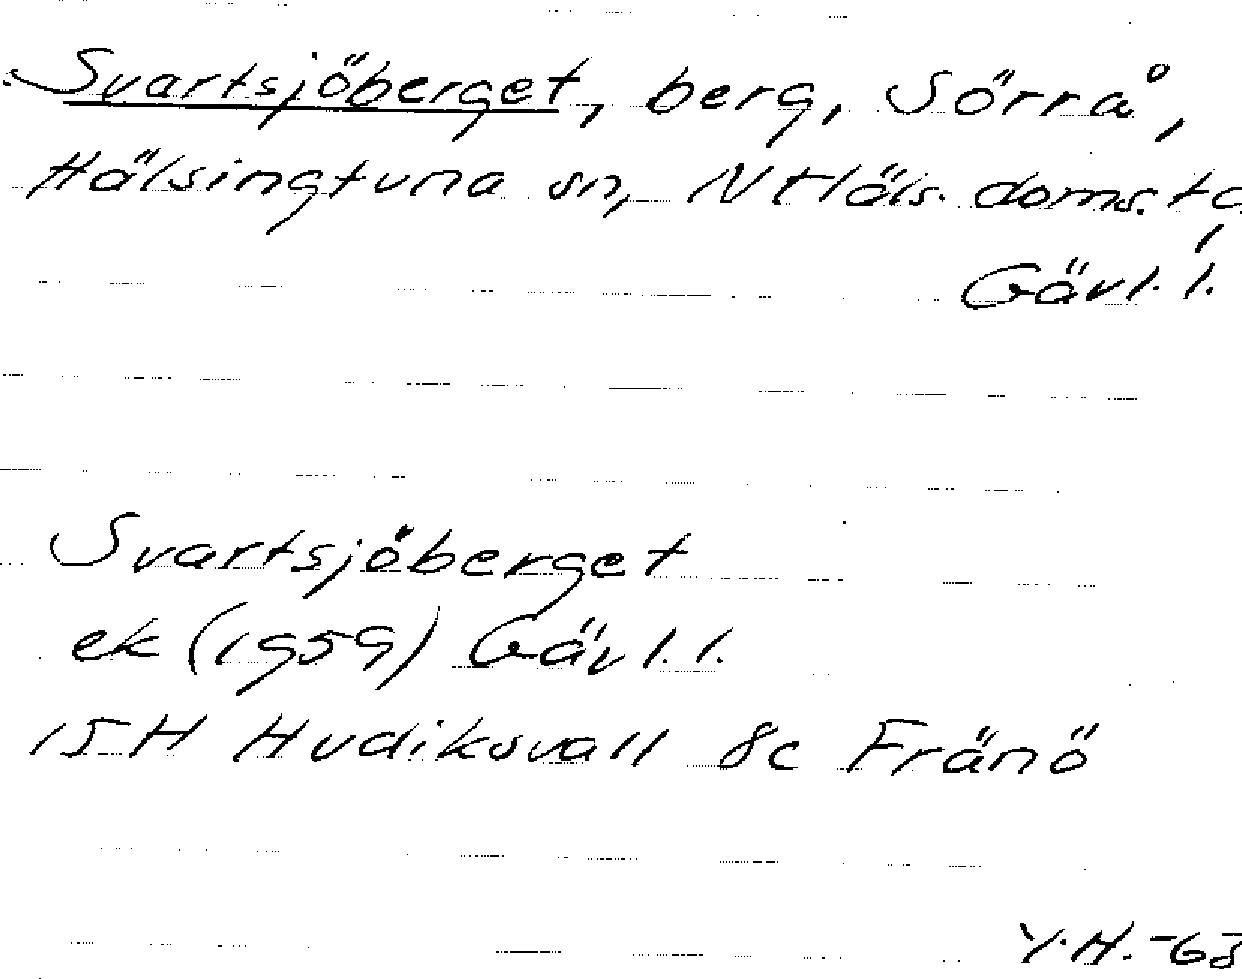 Svartsjöberget, berg, Sörrå,
Hälsingtuna sn, N Häls. doms. tg,
Gävl. l.
Svartsjöberget
ek (1959) Gävl. l.
15H Hudiksvall 8c Fränö
Y.H. -63